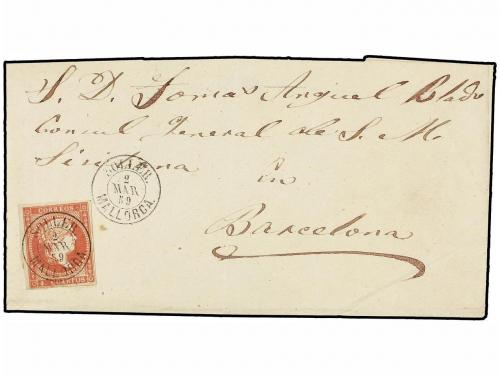 S. D. Tomas Anguel Blado
Consul General de S. M.
Siciliana
en
Barcelona
SOLLER.
2
MAR
59
MALLORCA.
CORREOS
SOLLER.
2
MAR
59
MALLORCA
4 CUARTOS